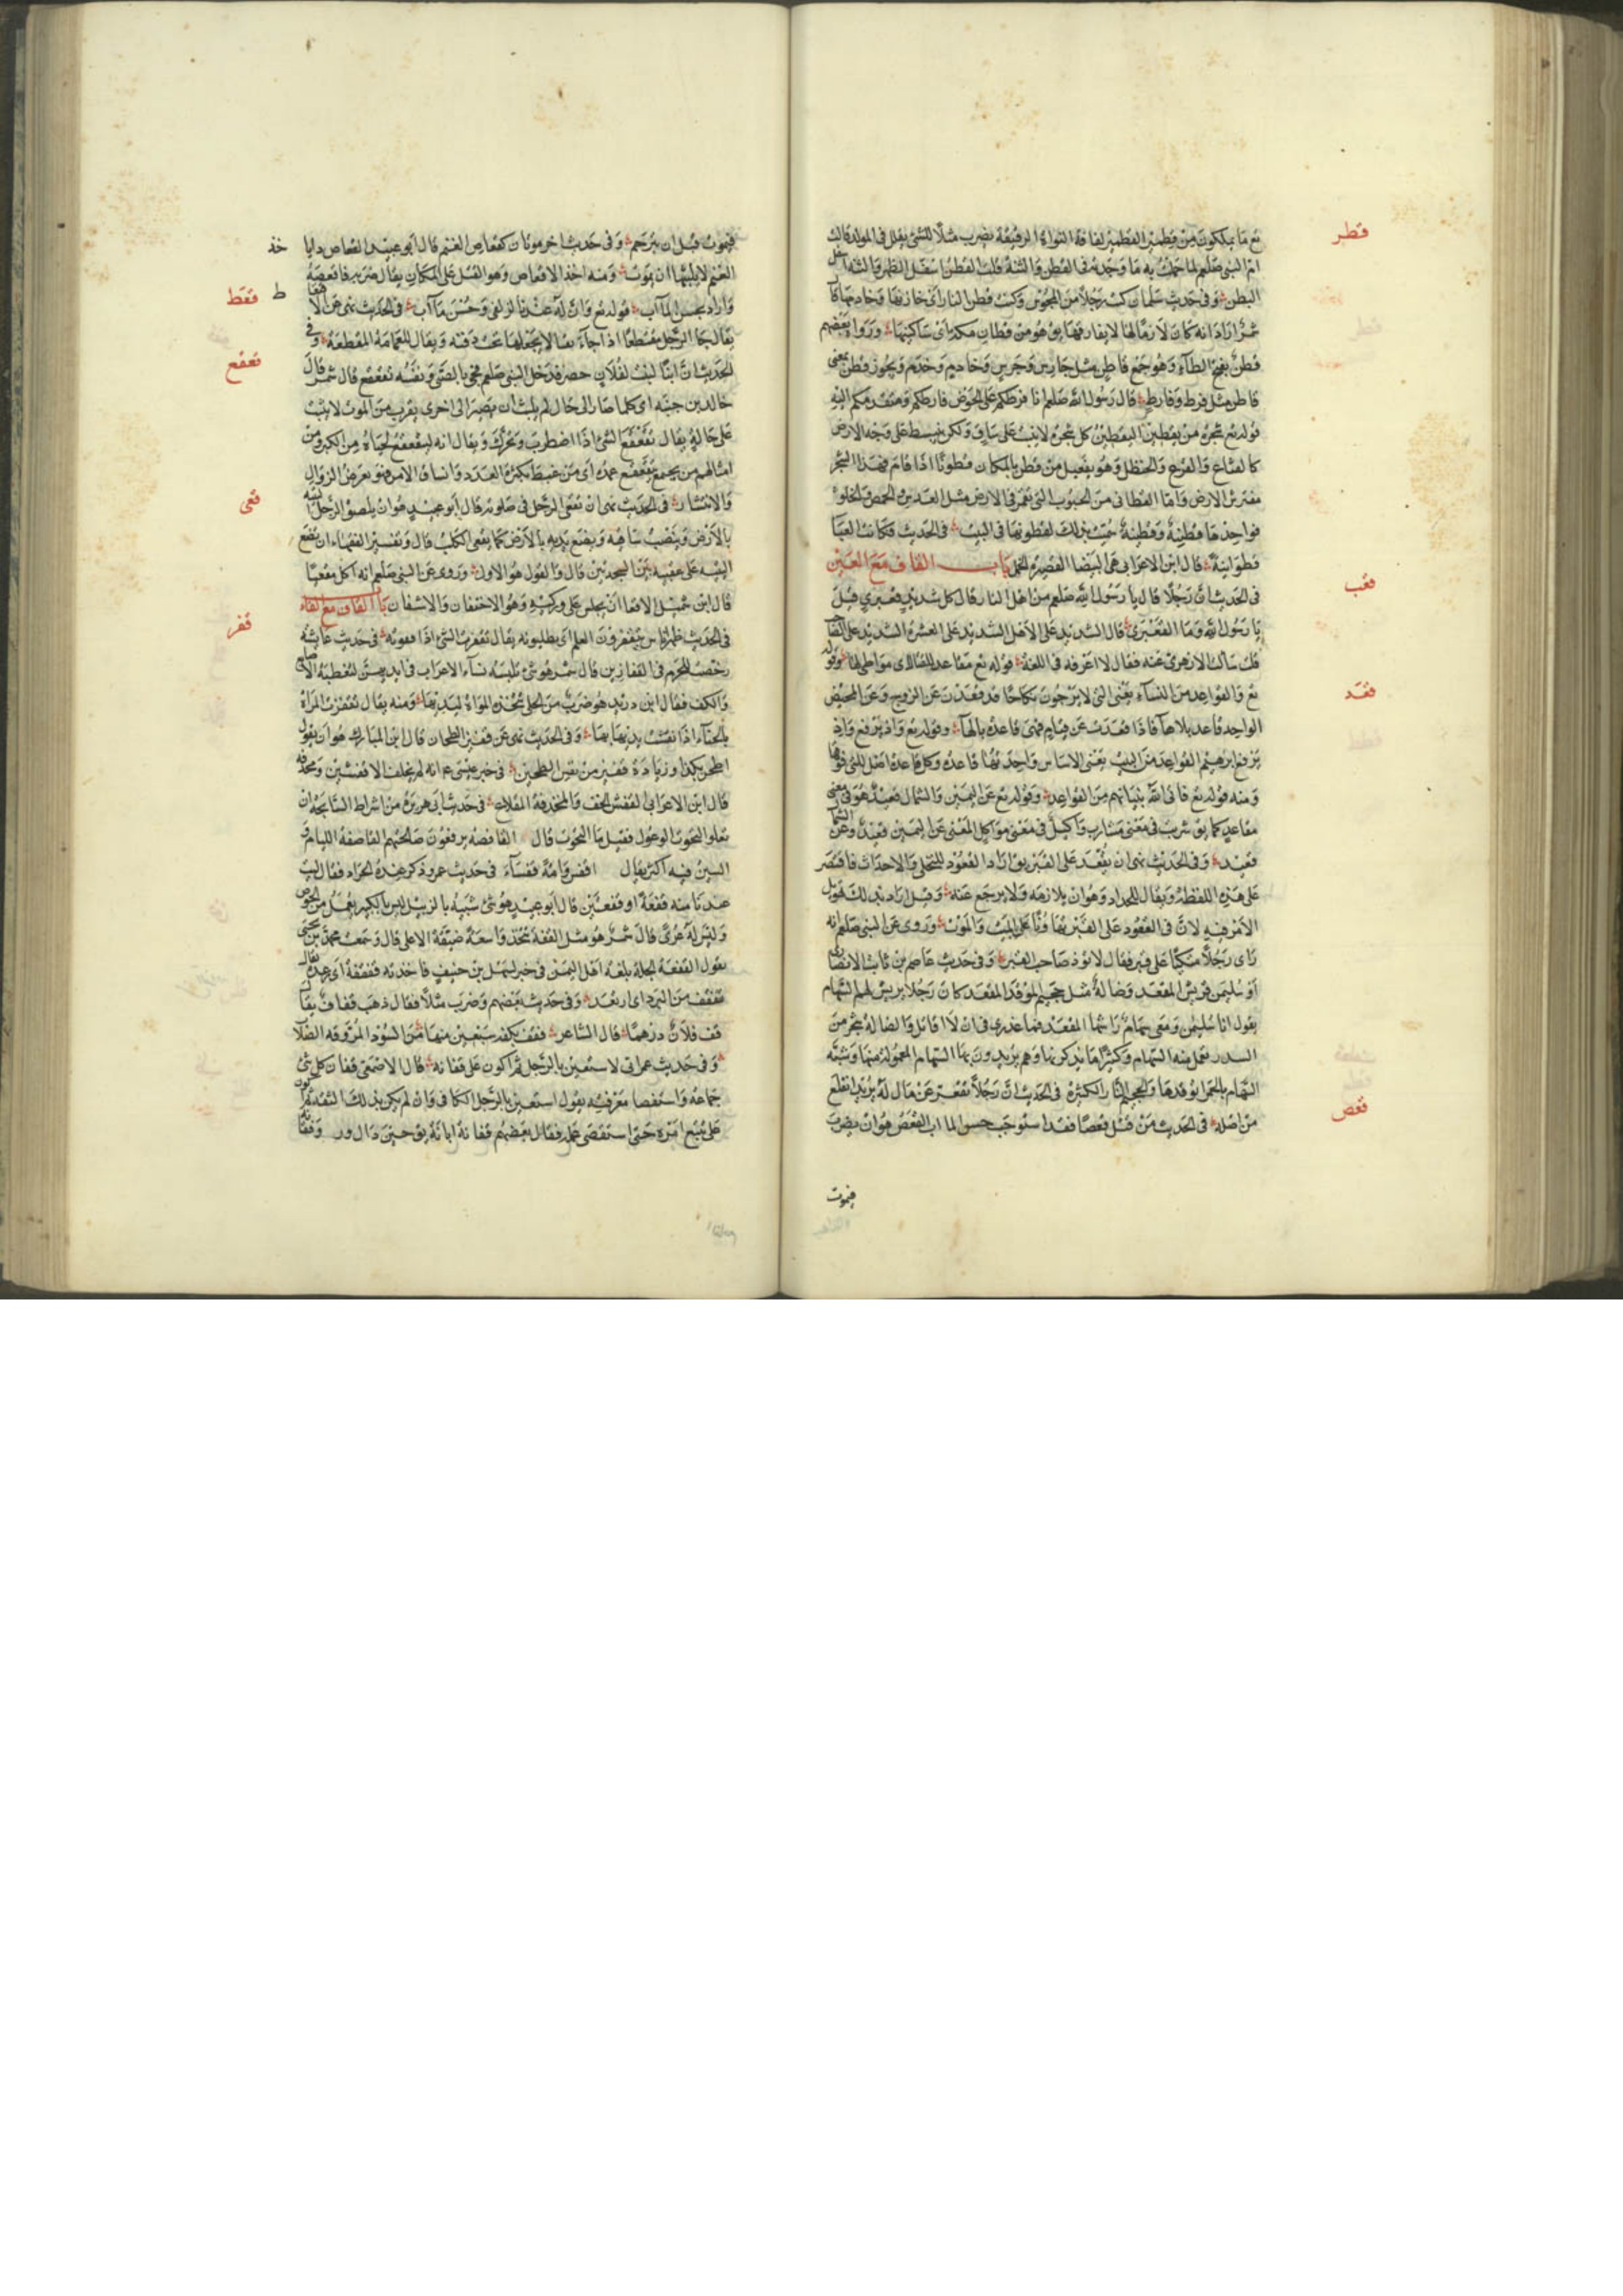 قطر
تع ما يملكون من قطمير القطمير لفافة النواة الرقيقة يضرب مثلا للشئ يقلل في المولد قالت
ام النبي صلعم لما حملت به ما وجدته في القطن والثنة قلت القطن اسفل الظهر والثنة اسفل
البطن وفي حديث سلمان كنت رجلا من المجوس وكنت قطن النار اي خازنها وخادمها قال
شمر اراد انه كان لازما لها لا يفارقها يق هو من قطان مكة اي ساكنيها ورواه بعضهم
قطن بفتح الطاء وهو جمع قاطن مثل حارس وحرس وخادم وخدم ويجوز قطن بمعنى
قاطن مثل فرط وفارط قال رسول الله صلعم انا فرطكم على الحوض فارطكم ومتقدمكم اليه
قوله تع شجرة من يقطين اليقطين كل شجرة لا تنبت على ساق ولكن ينبسط على وجه الارض
كالقثاء والقرع والحنظل وهو يفعيل من قطن بالمكان قطونا اذا قام فهذا الشجر
مفترش الارض واما القطاني من الحبوب التي تعمر في الارض مثل العدس والحمص والخلر
فواحدها قطنية وقطنية سميت بذلك لقطونها في البيت في الحديث فكانت العبا
قطوانية قال ابن الاعرابي هي البيضا القصيرة الخمل باب القاف مع العين
قعب
في الحديث ان رجلا قال يا رسول الله صلعم من اهل النار قال كل شديد قعبري قيل
يا رسول الله وما القعبري قال الشديد على الاهل الشديد على العشيرة الشديد على الصاحب
قلت سألت الازهري عنه فقال لا اعرفه في اللغة قوله تع مقاعد للقتال اي مواطن لها وقوله
قعد
تع والقواعد من النساء يعني التي لا يرجون نكاحا قد قعدن عن الزوج وعن المحيض
الواحد قاعد بلا هاء فاذا قعدت عن قيام فهي قاعدة بالهاء وقوله تع واذ يرفع واذ
يرفع ابرهيم القواعد من البيت يعني الاساس واحدتها قاعدة وكل قاعدة اصل للتي فوقها
ومنه قوله تع فاتى الله بنيانهم من القواعد وقوله تع عن اليمين والشمال قعيد هو في معنى
مقاعد كما يق شريب في معنى مشارب واكيل في معنى مواكل المعنى عن اليمين قعيد وعن الشمال
قعيد وفي الحديث نهى ان يقعد على القبر يق اراد القعود للتخلي والاحداث فاقتصر
على هذه اللفظة ويقال للحداد وهو ان يلازمه ولا يرجع عنه وقيل اراد بذلك تهويل
الامر فيه لان في القعود على القبر تهاونا على الميت والموت وروي عن النبي صلعم انه
راى رجلا متكيا على قبر فقال لا تؤذ صاحب القبر وفي حديث عاصم بن ثابت الانصاري
ابو سليمن وريش المقعد وضالة مثل جحيم الموقد المقعد كان رجلا يريش لهم السهام
يقول انا سليمن ومعي سهام راشها المقعد فما عذري في ان لا اقاتل والضالة شجر من
السدر تعمل منه السهام وكثيرا ما يذكرنها وهم يريدون بها السهام المعمولة منها وشبه
السهام بالجمر لتوقدها والجحيم النار الكثيرة في الحديث ان رجلا تقعر عن مال له يريد انقلع
قعص
من اصله في الحديث من قتل قعصا فقد استوجب حسن الماب القعص هو ان يضرب
فيموت
فيموت قبل ان يترحم وفي حديث اخر موتان كقعاص الغنم قال ابو عبيد القعاص دا يا
خذ
الغنم لا يلبثها ان تموت ومنه اخذ الاقعاص وهو القتل على المكان يقال ضربه فاقعصه
قعط
ط
واراد بحسن المآب قوله تع وان له عندنا لزلفى وحسن مآب في الحديث نهى عن الاقتعاط
يقال جا الرجل مقتعطا اذا جاء بها لا يجعلها تحت ذقنه ويقال للعمامة المقطعة وفي
قعقع
الحديث ان ابنا لبنت لفلان حضر فدخل النبي صلعم فجي بالصبي ونفسه تقعقع قال شمر قال
خالد بن جنبة اي كلما صار الى حال لم يلبث ان يصير الى اخرى يقرب من الموت لا يثبت
على حالة يقال تقعقع الشئ اذا اضطرب وتحرك ويقال انه ليتقعقع لحياه من الكبر ومن
امثالهم من يجتمع يتقعقع عمده اي من غبط بكثرة العدد واتساق الامر فهو بعرض الزوال
قعى
والانتشار في الحديث نهى ان يقعى الرجل في صلوته قال ابو عبيد هو ان يلصق الرجل اليته
بالارض وينصب ساقيه ويضع يديه بالارض كما يقعى الكلب قال وتفسير الفقهاء ان يضع
اليتيه على عقبيه بين السجدتين قال والقول هو الاول وروي عن النبي صلعم انه اكل مقعيا
قال ابن شميل الاقعا ان يجلس على وركيه وهو الاحتفاز والاستيفاز باب القاف مع الفاء
قفر
في الحديث ظهر اناس يتقفرون العلم اي يطلبونه يقال تقفرت الشئ اذا قفوته في حديث عايشة
رخصت للمحرم في القفازين قال شمر هو شئ تلبسه نساء الاعراب في ايديهن لتغطية الاصابع
والكف فقال ابن دريد هو ضرب من الحلى تتخذه المراة ليديها ومنه يقال تقفزت المراة
بالحناء اذا نقشت يديها بها وفي الحديث نهى عن قفيز الطحان قال ابن المبارك هو ان يقول
اطحن بكذا وزيادة قفيز من نفس الطحين في خبر عيسى عم انه لم يخلف الا قفشين ومخذفة
قال ابن الاعرابي القفش الخف والمخذفة المقلاع في حديث ابي هريرة من اشراط الساعة ان
تعلو التحوت الوعول فقيل ما التحوت قال القافصة يرفعون صالحيهم القافصة الليام و
السين فيه اكثر يقال اقفس وامة قفساء في حديث عمر وذكر عنده الجراد فقال ليت
عندنا منه قفعة او قفعتين قال ابو عبيد هو شئ شبيه بالزبيل ليس بالكبير يعمل من الخوص
وليس له عرى قال شمر هو مثل القفة تتخذ واسعة ضيقة الاعلى قال وسمعت محمد بن يحيى
يقول القفعة الجلة بلغة اهل اليمن في خبر سهل بن حنيف فاخذته قفقفة اي رعدة يقال
تقفقف من البرد اي ارتعد وفي حديث بعضهم وضرب مثلا فقال ذهب قفاف يقال
قف فلان درهما قال الشاعر فقف بكفه سبعين منها من السود المروقة الصلاب
وفي حديث عمر اني لاستعين بالرجل ثم اكون على قفانه قال الاصمعي قفان كل شئ
جماعه واستقصا معرفته يقول استعين بالرجل الكافي وان لم يكن بذلك الثقة ثم اكون
على تتبع امره حتى استقصى علمه فقال بعضهم قفانه ابانه يق حين